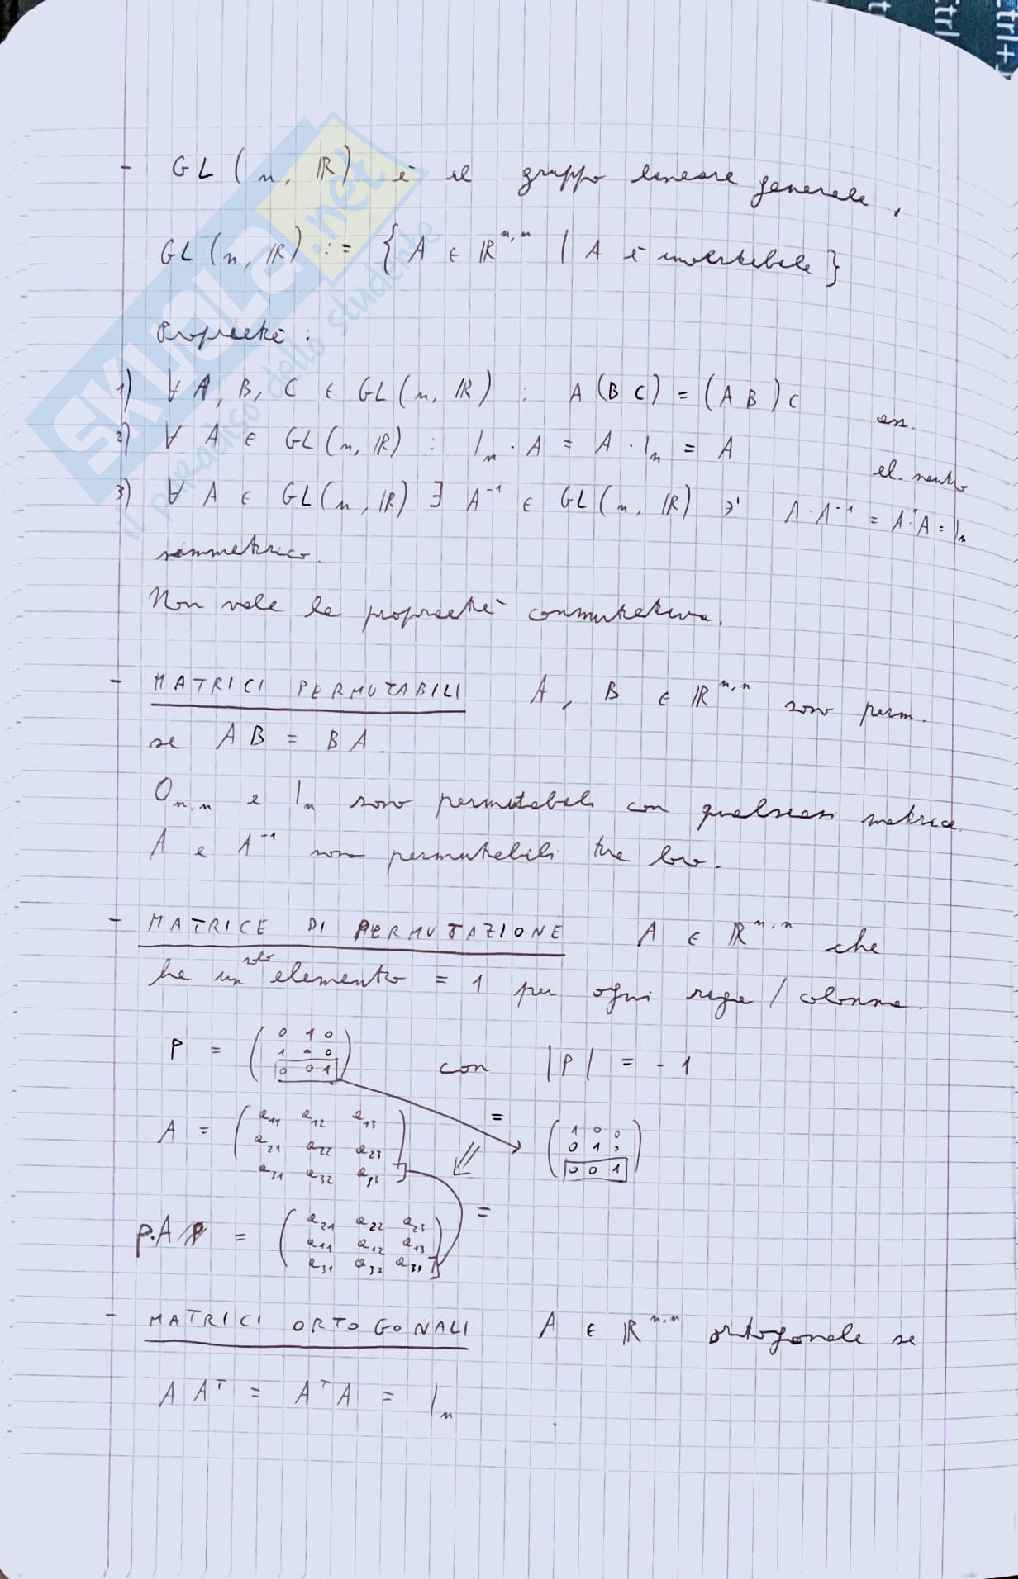 - GL (n, ℝ) è il gruppo lineare generale,
GL (n, ℝ) := { A ∈ ℝⁿ˒ⁿ | A è invertibile }
Proprietà :
1) ∀ A, B, C ∈ GL (n, ℝ) : A (B C) = (A B) C
es.
2) ∀ A ∈ GL (n, ℝ) : Iₙ · A = A · Iₙ = A
el. neutro
3) ∀ A ∈ GL (n, ℝ) ∃ A⁻¹ ∈ GL (n, ℝ) ∋' A · A⁻¹ = A⁻¹A = Iₙ
simmetrico.
Non vale la proprietà commutativa.
- MATRICI PERMUTABILI A, B ∈ ℝⁿ˒ⁿ sono perm.
se AB = BA
Oₙ,ₙ e Iₙ sono permutabili con qualsiasi matrice
A e A⁻¹ sono permutabili tra loro.
- MATRICE DI PERMUTAZIONE A ∈ ℝⁿ˒ⁿ che
ha un solo elemento = 1 per ogni riga / colonna
P = ( 0 1 0
1 0 0
0 0 1 ) con |P| = -1
A = ( a₁₁ a₁₂ a₁₃
a₂₁ a₂₂ a₂₃
a₃₁ a₃₂ a₃₃ )
=
( 1 0 0
0 1 0
0 0 1 )
P.A = ( a₂₁ a₂₂ a₂₃
a₁₁ a₁₂ a₁₃
a₃₁ a₃₂ a₃₃ )
=
- MATRICI ORTOGONALI A ∈ ℝⁿ˒ⁿ ortogonale se
A Aᵀ = AᵀA = Iₙ
SKUOLA.net
il paradiso dello studente
ctrl
ctrl
ctrl+